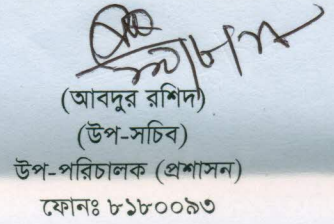 (আবদুর রশিদ)
(উপ-সচিব)
উপ-পরিচালক (প্রশাসন)
ফোনঃ ৮১৮০০৯৩